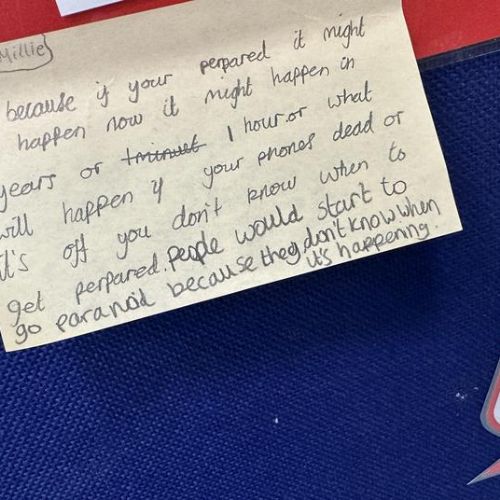 Millie
because if your perpared it might
happen now it might happen in
years or 1minuet 1 hour.or what
will happen if your phones dead or
it's off you don't know when to
get perpared.People would start to
go paranoid because they don't know when
it's happening.